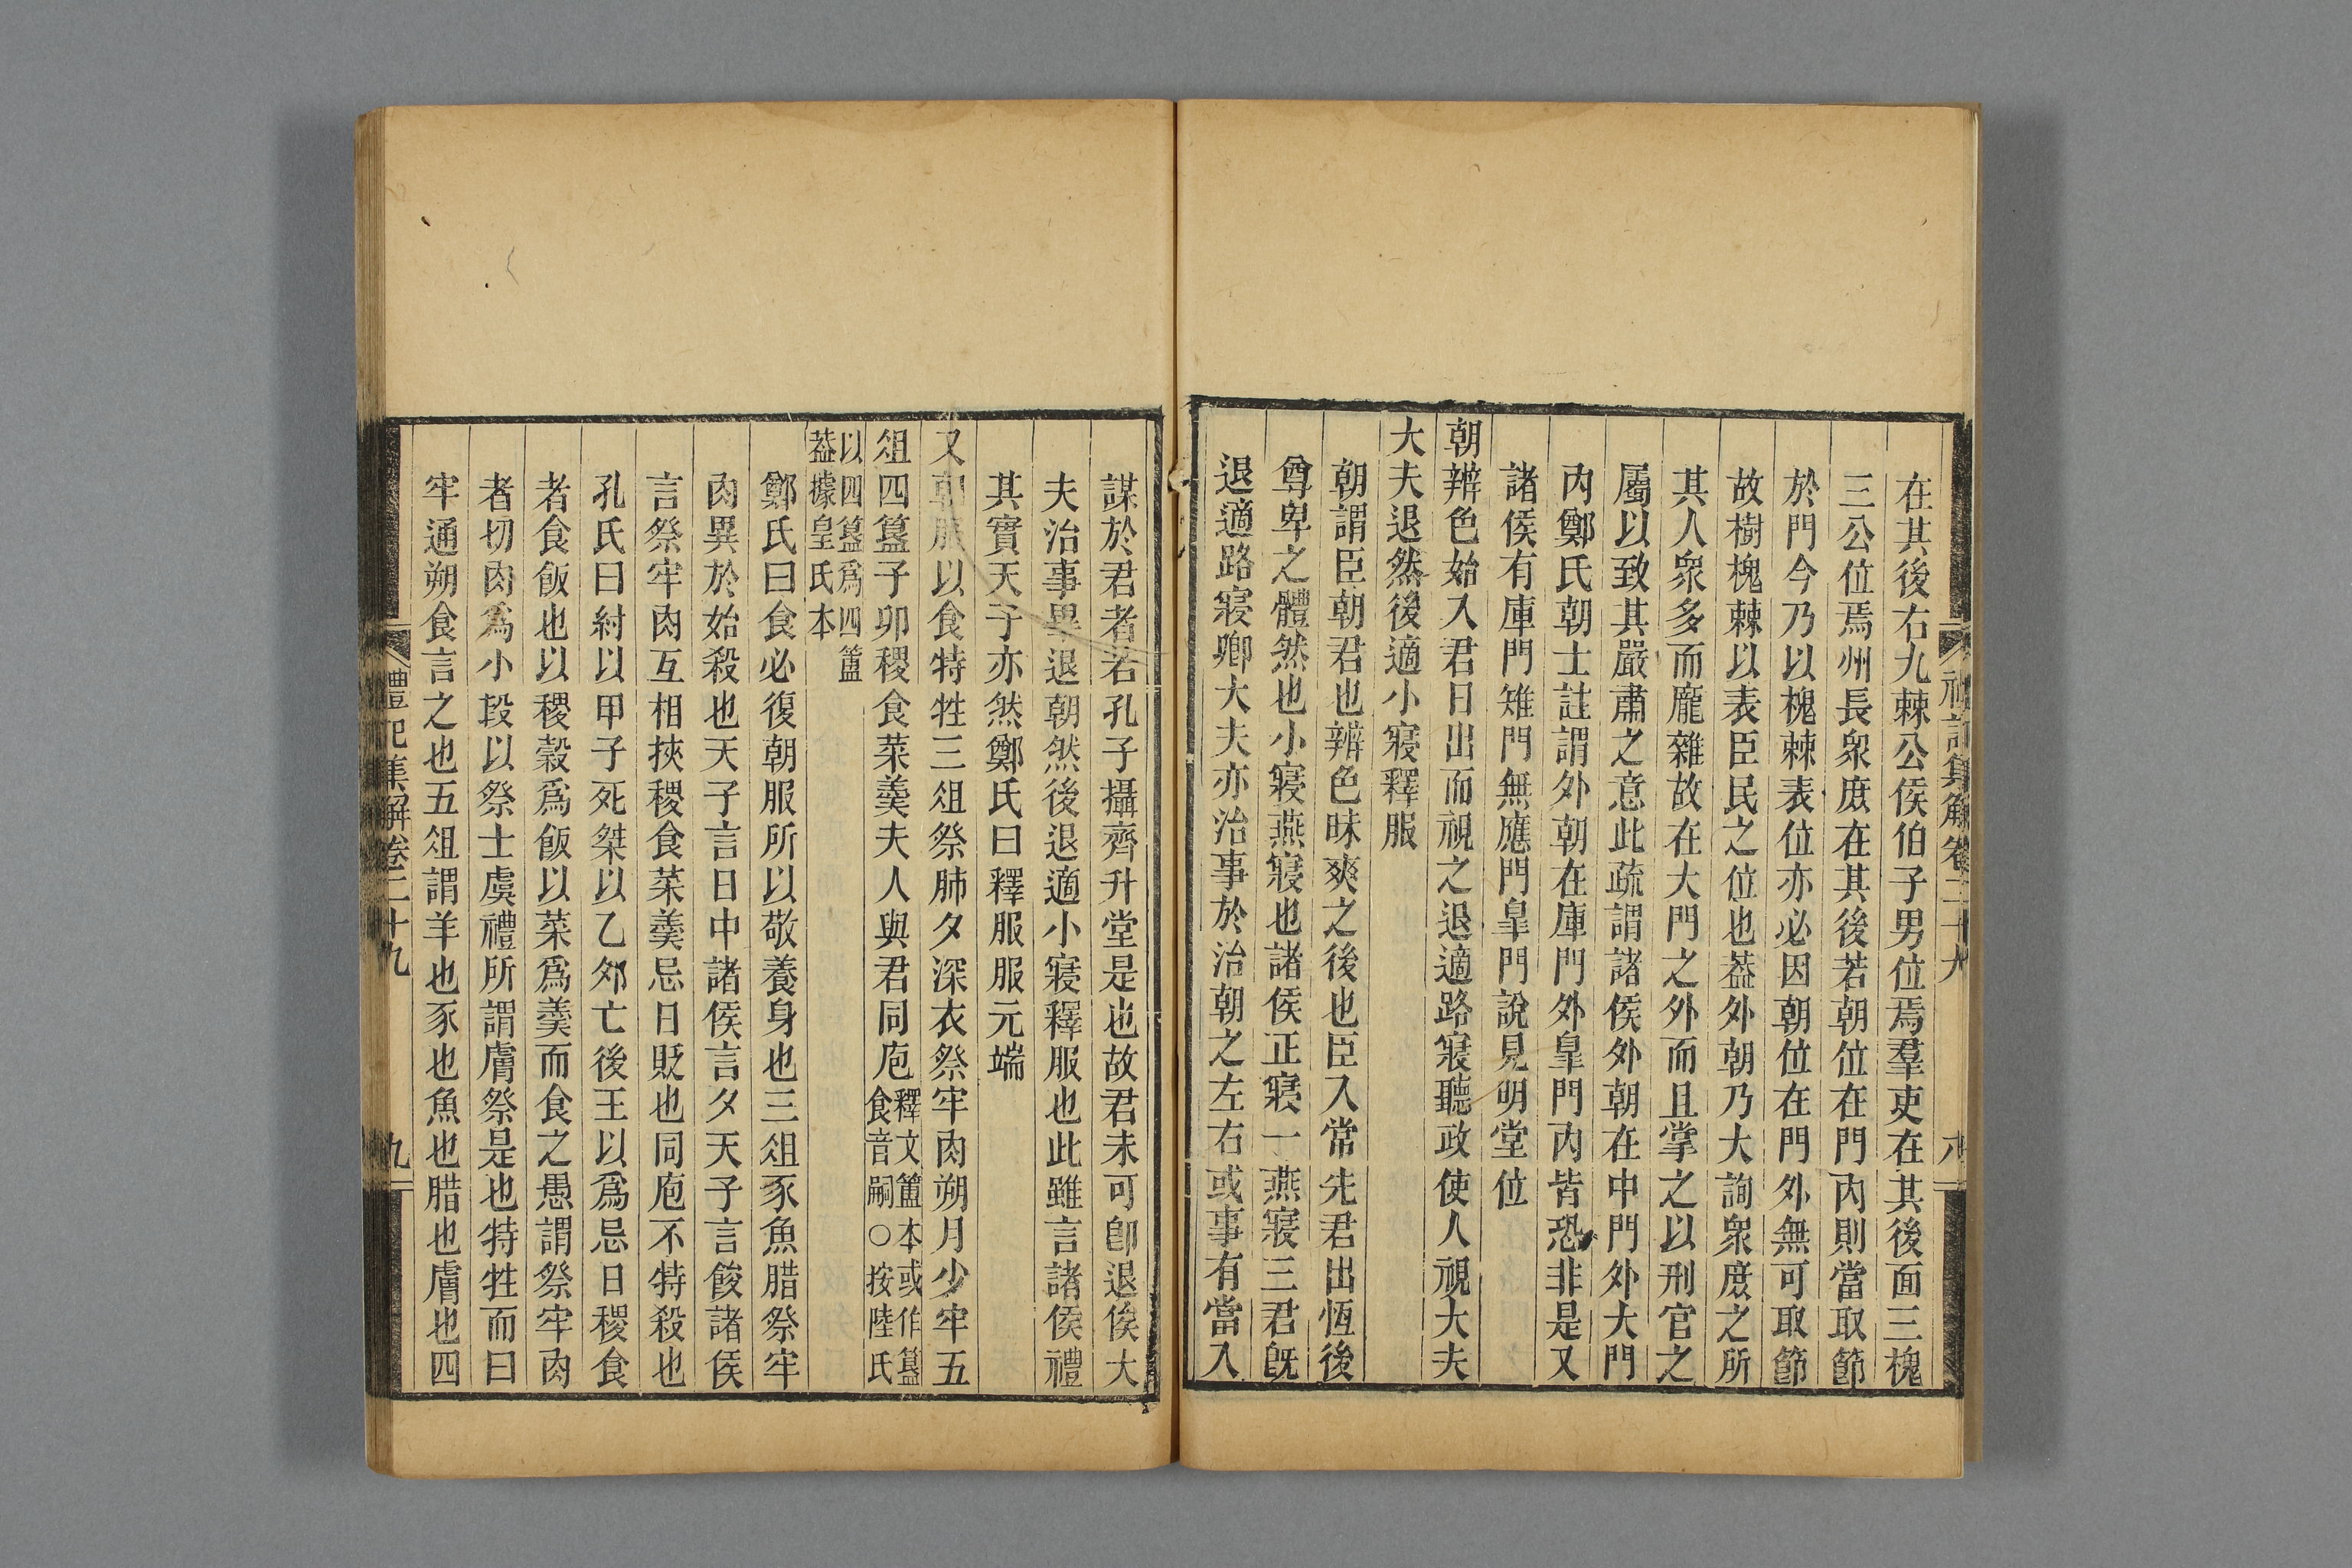 禮記集解卷二十九 八
在其後右九棘公侯伯子男位焉羣吏在其後面三槐
三公位焉州長衆庶在其後若朝位在門內則當取節
於門今乃以槐棘表位亦必因朝位在門外無可取節
故樹槐棘以表臣民之位也葢外朝乃大詢衆庶之所
其人衆多而龐雜故在大門之外而且掌之以刑官之
屬以致其嚴肅之意此疏謂諸侯外朝在中門外大門
內鄭氏朝士註謂外朝在庫門外皐門內皆恐非是又
諸侯有庫門雉門無應門皐門說見明堂位
朝辨色始入君日出而視之退適路寢聽政使人視大夫
大夫退然後適小寢釋服
朝謂臣朝君也辨色昧爽之後也臣入常先君出恆後
尊卑之體然也小寢燕寢也諸侯正寢一燕寢三君旣
退適路寢卿大夫亦治事於治朝之左右或事有當入
謀於君者若孔子攝齊升堂是也故君未可卽退俟大
夫治事畢退朝然後退適小寢釋服也此雖言諸侯禮
其實天子亦然鄭氏曰釋服服元端
又朝服以食特牲三俎祭肺夕深衣祭牢肉朔月少牢五
俎四簋子卯稷食菜羹夫人與君同庖釋文簠本或作簋
食音嗣○按陸氏
以四簋爲四簠
葢據皇氏本
鄭氏曰食必復朝服所以敬養身也三俎豕魚腊祭牢
肉異於始殺也天子言日中諸侯言夕天子言餕諸侯
言祭牢肉互相挾稷食菜羹忌日貶也同庖不特殺也
孔氏曰紂以甲子死桀以乙夘亡後王以爲忌日稷食
者食飯也以稷穀爲飯以菜爲羹而食之愚謂祭牢肉
者切肉爲小段以祭士虞禮所謂膚祭是也特牲而曰
牢通朔食言之也五俎謂羊也豕也魚也腊也膚也四
禮記集解卷二十九 九